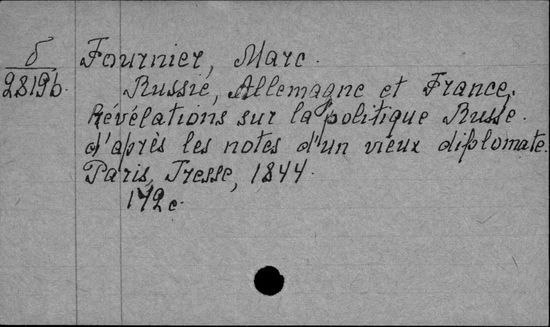 б
2819b.
Fournier, Marc.
Russie, Allemagne et France,
Révélations sur la politique Russe.
d'après les notes d'un vieux diplomate.
Paris, Tresse, 1844.
172 c.